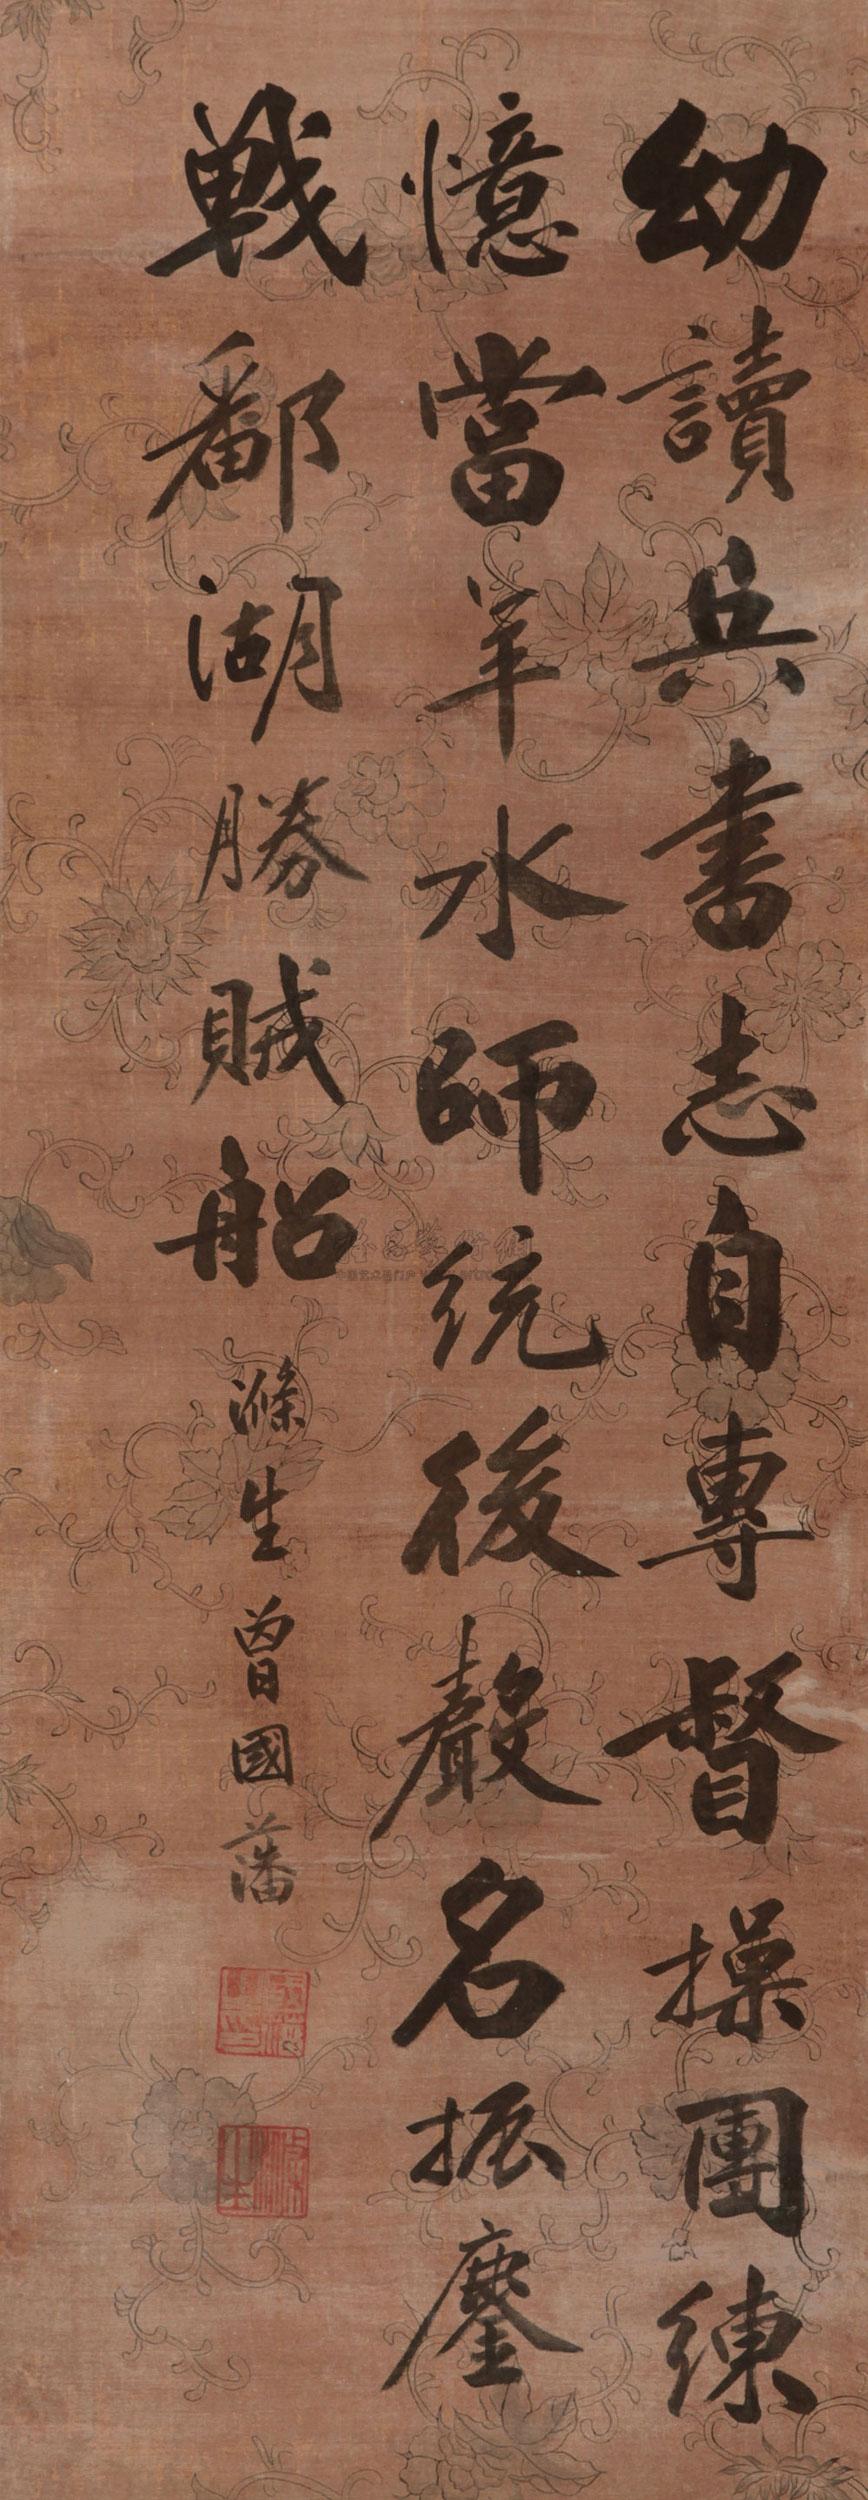 幼讀兵書志自專督操團練
憶當年水師統後聲名振鏖
戰鄱湖勝賊船
滌生曾國藩